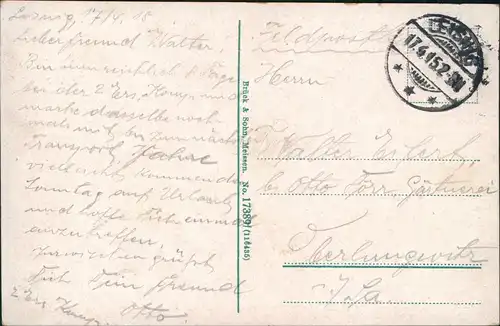 Leisnig, 17/4. 15
Lieber Freund Walter!
Bin nun reichlich 8 Tage
bei der 2 Ers. Komp. und
mache dasselbe noch
mals mit bis zum nächsten
Transport. Fahre
vielleicht kommenden
Sonntag auf Urlaub
und hoffe Dich einmal
anzutreffen.
Inzwischen grüßt
Dich Dein Freund
Otto.
2 Ers. Komp.
Brück & Sohn, Meissen. No. 17389 (116435)
Feldpost
LEISNIG
17.4.15.
Herrn
Walter
bei Otto Gärtnerei
Oberlungwitz
i/Sa.